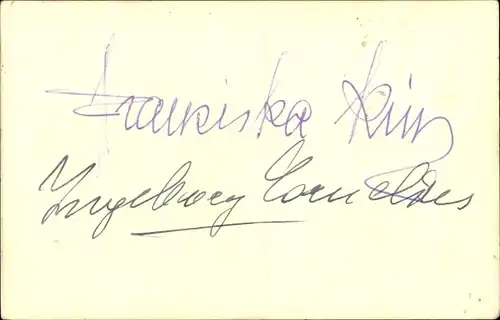 Franziska Kinz
Ingeborg Cornelius